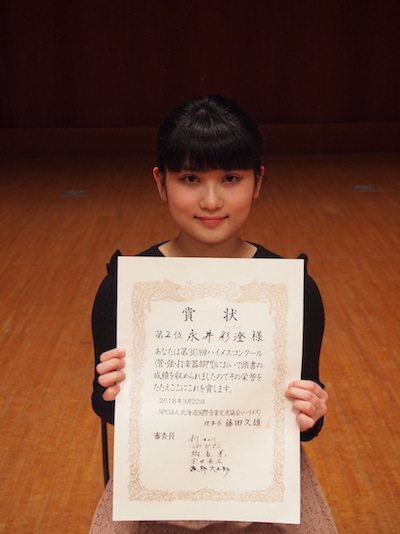 賞状
第2位 永井彩澄 様
あなたは第30回ハイメスコンクール
(管・弦・打楽器部門)において頭書の
成績を収められましたのでその栄誉を
たたえここにこれを賞します。
2018年9月22日
NPO法人 北海道国際音楽交流協会(ハイメス)
理事長 藤田久雄
審査員